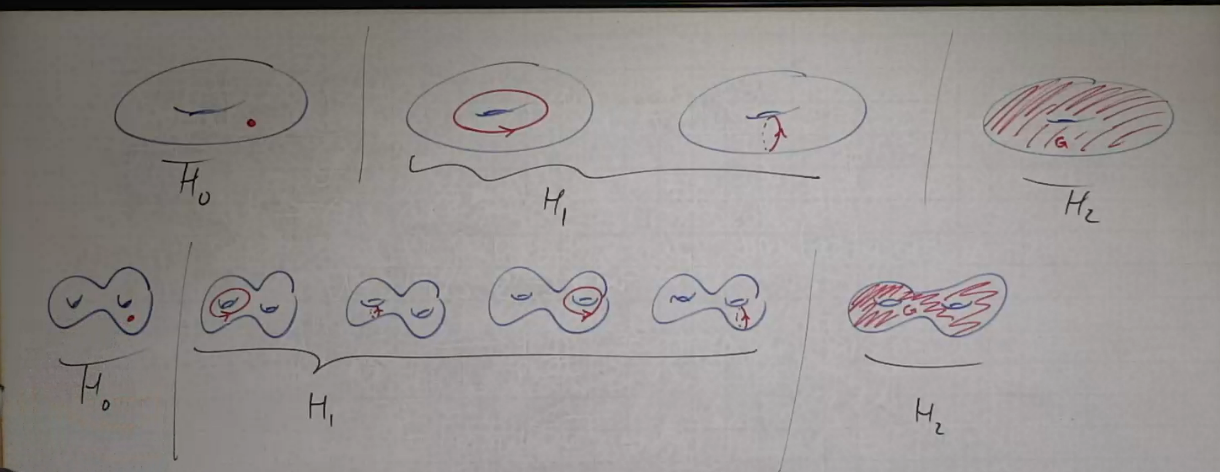 H₀ H₁ H₂
H₀ H₁ H₂